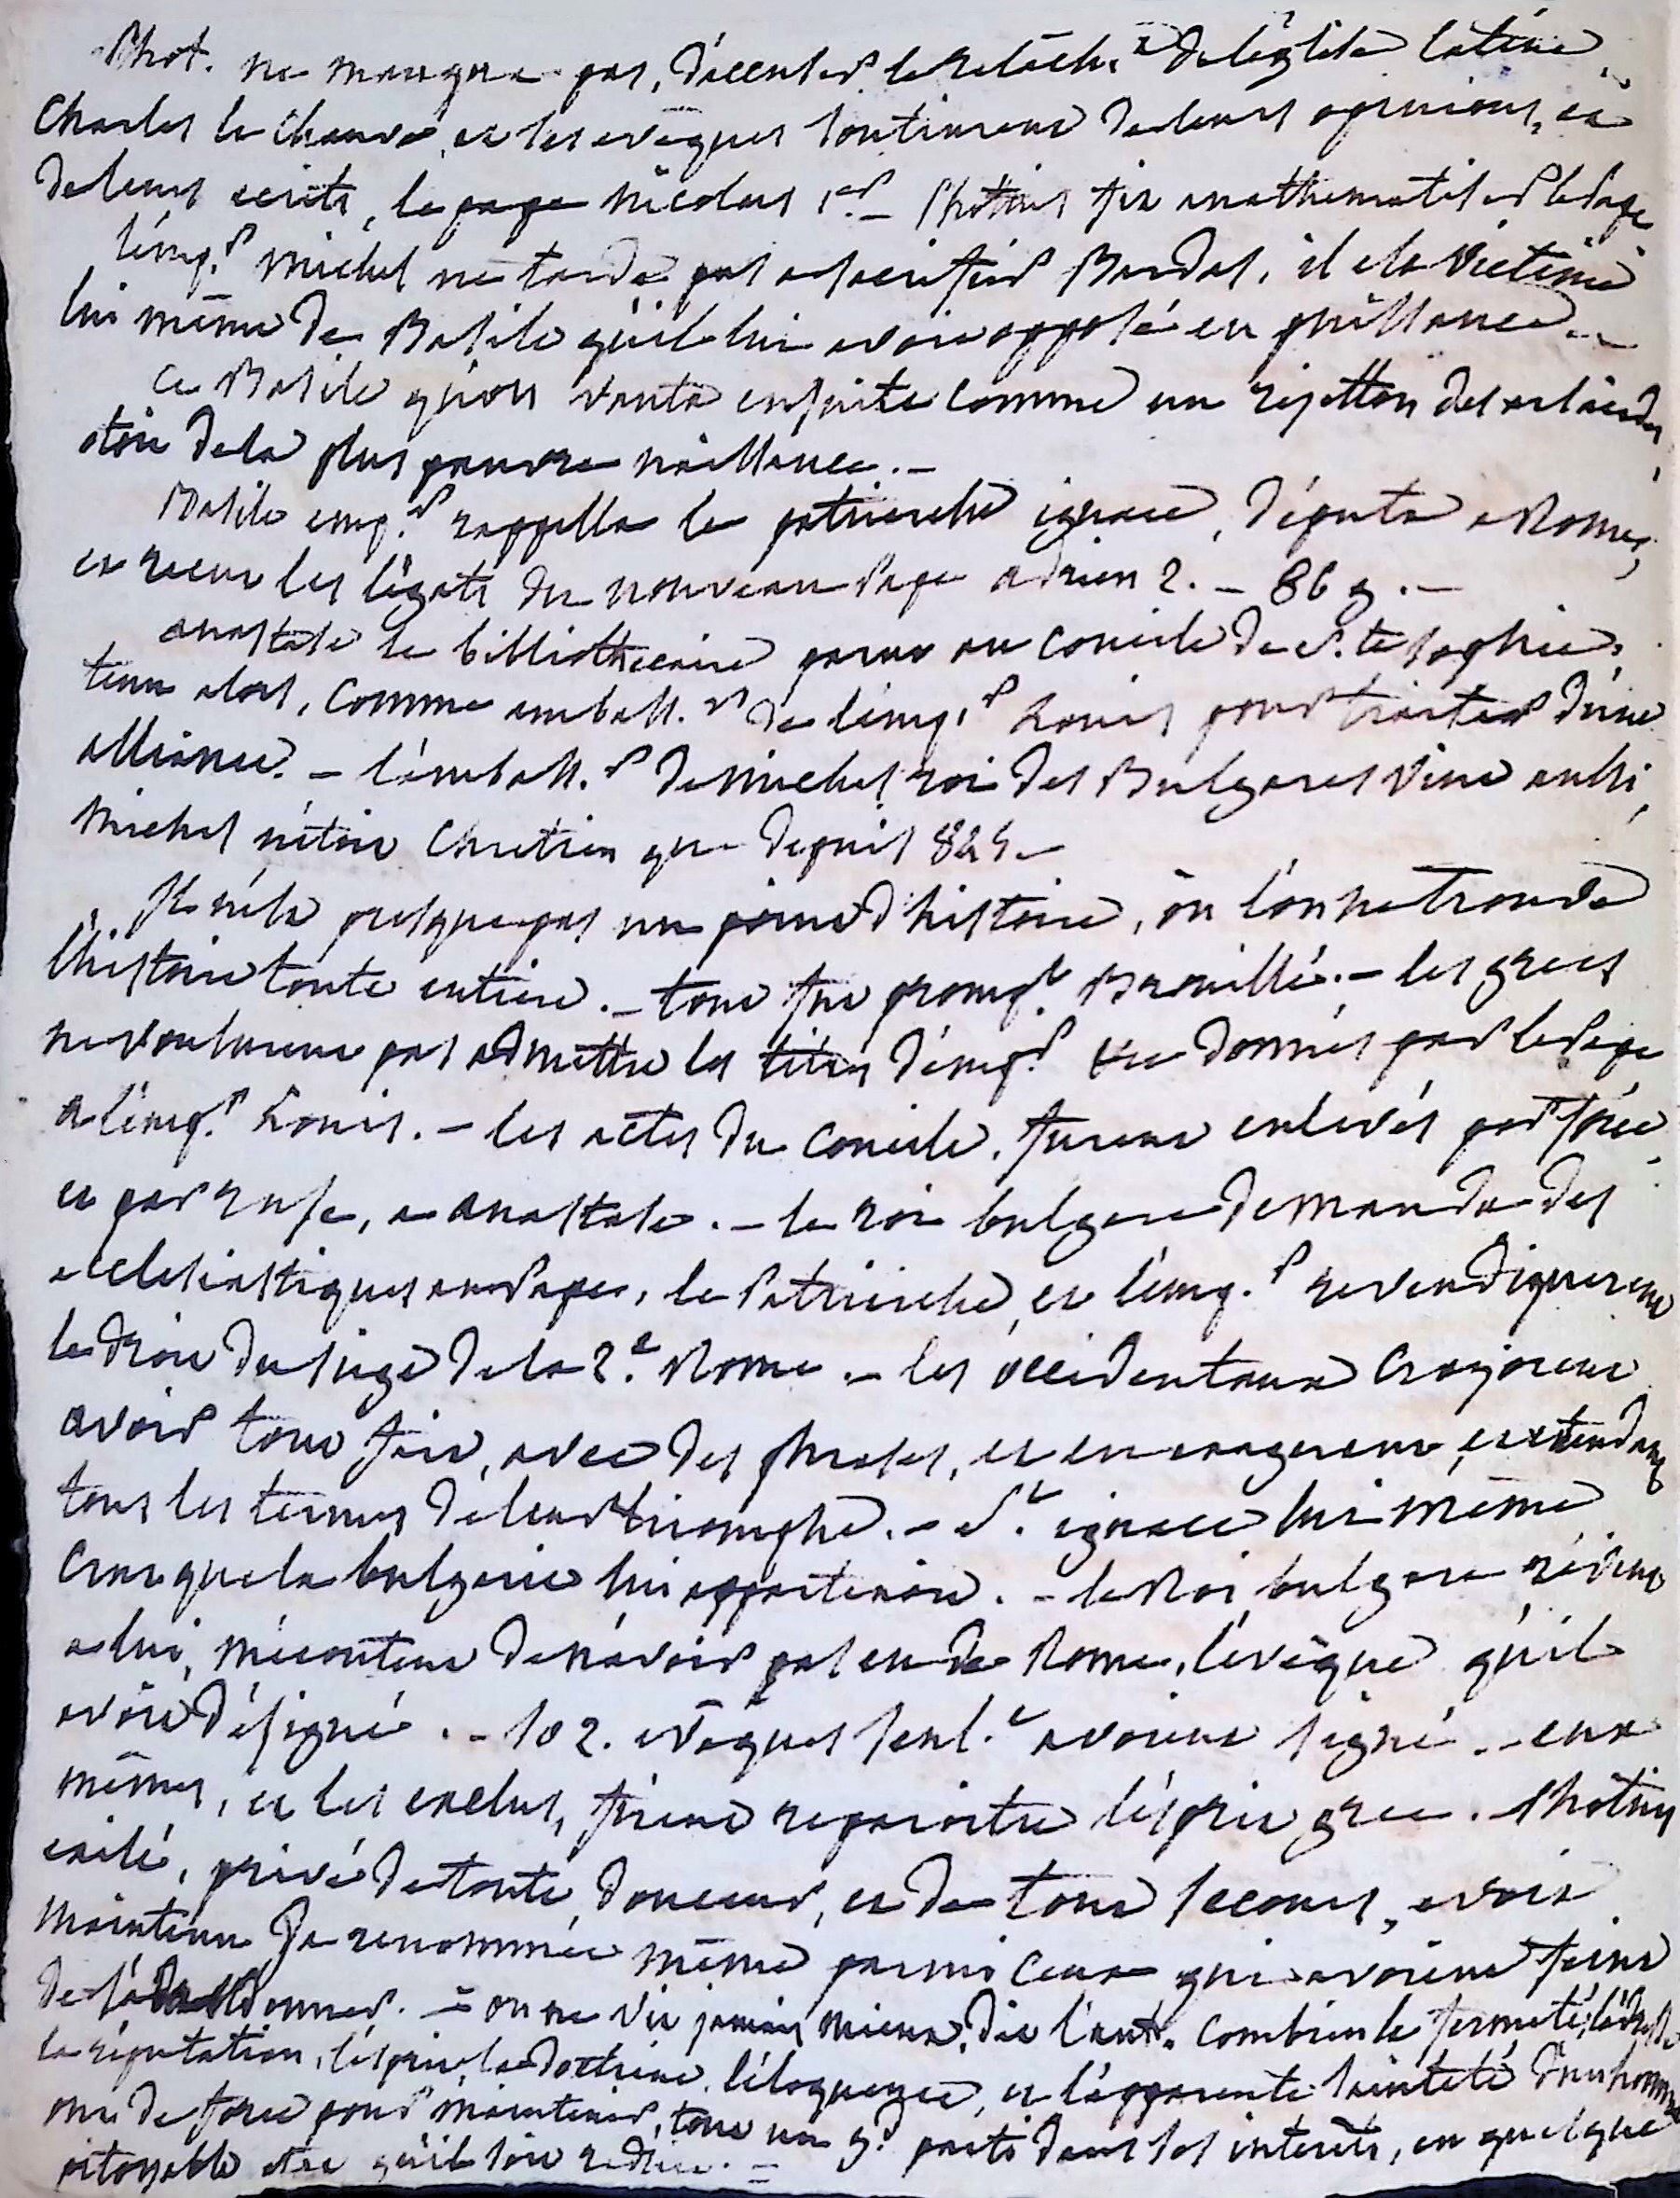 Phot. ne manqua pas, d'accuser le relâche. de l'eglise latine,
Charles le Chauve, et les evêques soutinrent de leurs opinions, et
de leurs ecrits, le pape nicolas 1er. – Photius fit anathematiser le Pape
l'emp.r michel ne tarda pas a sacrifier Bardas, il est victime
lui même de Basile qu'il lui avoit opposé en puissance. –
Ce Basile qu'on vanta ensuite comme un rejetton des arsacides,
etoit de la plus pauvre naissance. –
Basile emp.r rappella le patriarche ignace, députa a Rome,
et recut les légats du nouveau Pape adrien 2. – 869. –
anastase le billiothecaire parut au concile de S.te sophie,
tenu alors, comme ambass.r de l'emp.r Louis pour traiter d'une
alliance. – l'ambass.r de michel roi des Bulgares vint aussi,
michel n'étoit Chretien que depuis
Il n'est presque pas un point d'histoire, où l'on ne trouve
l'histoire toute entiere. – tout fut promp.t Brouillé. – les grecs
ne voulurent pas admettre les titres d'emp.r donnés par le Pape
a l'emp.r Louis. – les actes du concile, furent enlevés par force,
et par ruse, a anastase. – le roi bulgare demanda des
ecclesiastiques au Pape, le Patriarche, et l'emp.r revendiquerent
le droit du siege de la 2.e Rome. – les occidentaux croyoient
avoir tout fait, avec des phrases, et en exagerant, et etendant
tous les termes de leur triomphe. – S.t ignace lui même
crut que la bulgarie lui appartenoit. – le Roi bulgare revint
a lui, mécontent de n'avoir pas eu de Rome, l'evêque qu'il
avoit désigné. – 102. evêques seul.t avoient signé. – eux
mêmes, et les exclus, firent reparoitre l'esprit grec. Photius
exilé, privé de toute douceur, et de tout secours, avoit
maintenu sa renommée même parmi ceux qui avoient feint
de l'abandonner. = on ne vit jamais mieux, dit l'aut. combien la fermeté, l'adresse
la réputation, l'esprit, la doctrine, l'éloquence, et l'apparente sainteté d'un homme
ont de force pour maintenir, tout un g.d parti dans ses interêts, en quelque
pitoyable etat qu'il soit reduit. =